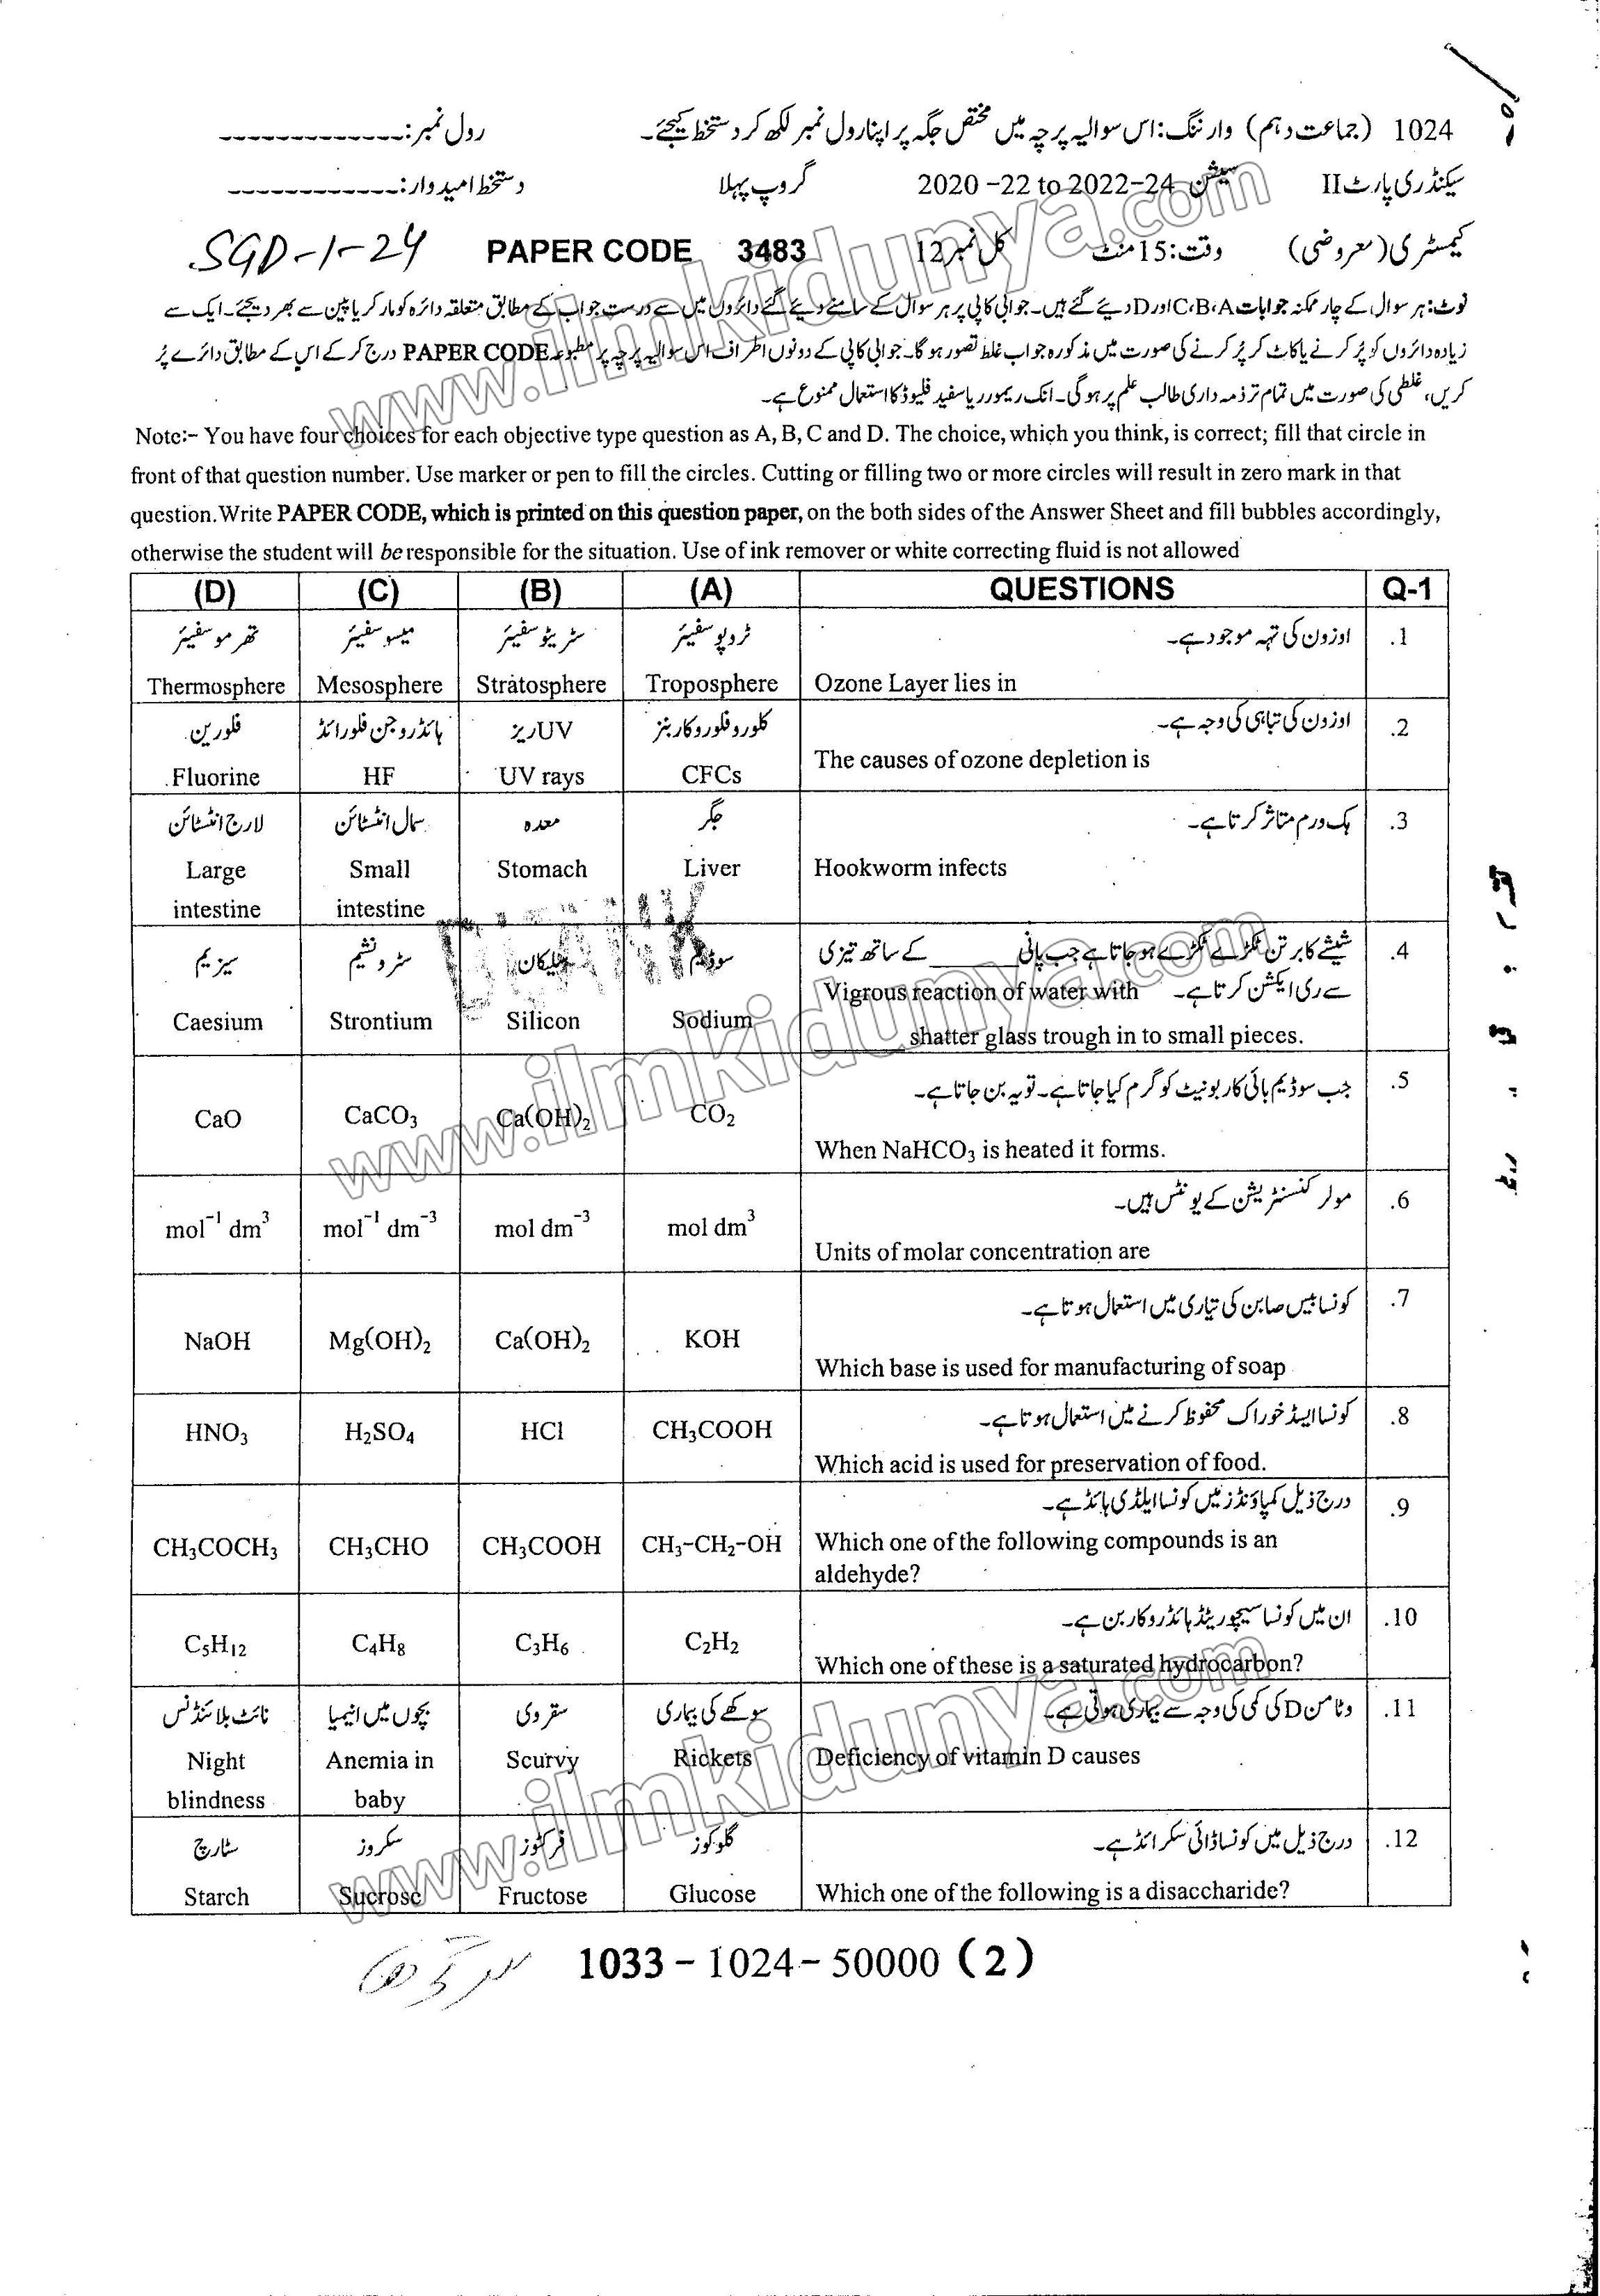 1024 (جماعت دہم) وارننگ: اس سوالیہ پرچہ میں مختص جگہ پر اپنا رول نمبر لکھ کر دستخط کیجئے۔ رول نمبر: -------------
سیکنڈری پارٹ II سیشن 2020-22 to 2022-24 گروپ پہلا دستخط امیدوار: ------------
کیمسٹری (معروضی) وقت: 15 منٹ کل نمبر 12 PAPER CODE 3483 SGD-1-24
نوٹ: ہر سوال کے چار ممکنہ جوابات C، B، A اور D دیے گئے ہیں۔ جوابی کاپی پر ہر سوال کے سامنے دیے گئے دائروں میں سے درست جواب کے مطابق متعلقہ دائرہ کو مارکر یا پین سے بھر دیجئے۔ ایک سے
زیادہ دائروں کو پُر کرنے یا کاٹ کر پُر کرنے کی صورت میں مذکورہ جواب غلط تصور ہوگا۔ جوابی کاپی کے دونوں اطراف اس سوالیہ پرچہ پر مطبوعہ PAPER CODE درج کر کے اس کے مطابق دائرے پُر
کریں، غلطی کی صورت میں تمام تر ذمہ داری طالب علم پر ہوگی۔ انک ریمور یا سفید فلیوڈ کا استعمال ممنوع ہے۔
Note:- You have four choices for each objective type question as A, B, C and D. The choice, which you think, is correct; fill that circle in
front of that question number. Use marker or pen to fill the circles. Cutting or filling two or more circles will result in zero mark in that
question.Write PAPER CODE, which is printed on this question paper, on the both sides of the Answer Sheet and fill bubbles accordingly,
otherwise the student will be responsible for the situation. Use of ink remover or white correcting fluid is not allowed
(D) (C) (B) (A) QUESTIONS Q-1
تھرموسفیئر میسوسفیئر سٹریٹوسفیئر ٹروپوسفیئر اوزون کی تہہ موجود ہے۔ .1
Thermosphere Mesosphere Stratosphere Troposphere Ozone Layer lies in
فلورین ہائڈروجن فلورائڈ UV ریز کلوروفلوروکاربنز اوزون کی تباہی کی وجہ ہے۔ .2
Fluorine HF UV rays CFCs The causes of ozone depletion is
لارج انٹسٹائن سمال انٹسٹائن معدہ جگر ہک ورم متاثر کرتا ہے۔ .3
Large Small Stomach Liver Hookworm infects
intestine intestine
سیزیم سٹرونشیم سلیکان سوڈیم شیشے کا برتن ٹکڑے ٹکڑے ہو جاتا ہے جب پانی ______ کے ساتھ تیزی .4
سے ری ایکشن کرتا ہے۔ Vigrous reaction of water with
Caesium Strontium Silicon Sodium ______ shatter glass trough in to small pieces.
جب سوڈیم بائی کاربونیٹ کو گرم کیا جاتا ہے۔ تو یہ بن جاتا ہے۔ .5
CaO CaCO₃ Ca(OH)₂ CO₂
When NaHCO₃ is heated it forms.
مولر کنسنٹریشن کے یونٹس ہیں۔ .6
mol⁻¹ dm³ mol⁻¹ dm⁻³ mol dm⁻³ mol dm³
Units of molar concentration are
کونسا بیس صابن کی تیاری میں استعمال ہوتا ہے۔ .7
NaOH Mg(OH)₂ Ca(OH)₂ KOH
Which base is used for manufacturing of soap
کونسا ایسڈ خوراک محفوظ کرنے میں استعمال ہوتا ہے۔ .8
HNO₃ H₂SO₄ HCl CH₃COOH
Which acid is used for preservation of food.
درج ذیل کمپاؤنڈز میں کونسا ایلڈی ہائڈ ہے۔ .9
CH₃COCH₃ CH₃CHO CH₃COOH CH₃-CH₂-OH Which one of the following compounds is an
aldehyde?
ان میں کونسا سیچوریٹڈ ہائڈروکاربن ہے۔ .10
C₅H₁₂ C₄H₈ C₃H₆ C₂H₂
Which one of these is a saturated hydrocarbon?
نائٹ بلائنڈنس بچوں میں انیمیا سقروی سوکھے کی بیماری وٹامن D کی کمی کی وجہ سے بیماری ہوتی ہے۔ .11
Night Anemia in Scurvy Rickets Deficiency of vitamin D causes
blindness baby
سٹارچ سکروز فرکٹوز گلوکوز درج ذیل میں کونسا ڈائی سکرائڈ ہے۔ .12
Starch Sucrose Fructose Glucose Which one of the following is a disaccharide?
1033 - 1024 - 50000 (2)
www.ilmkidunya.com
www.ilmkidunya.com
www.ilmkidunya.com